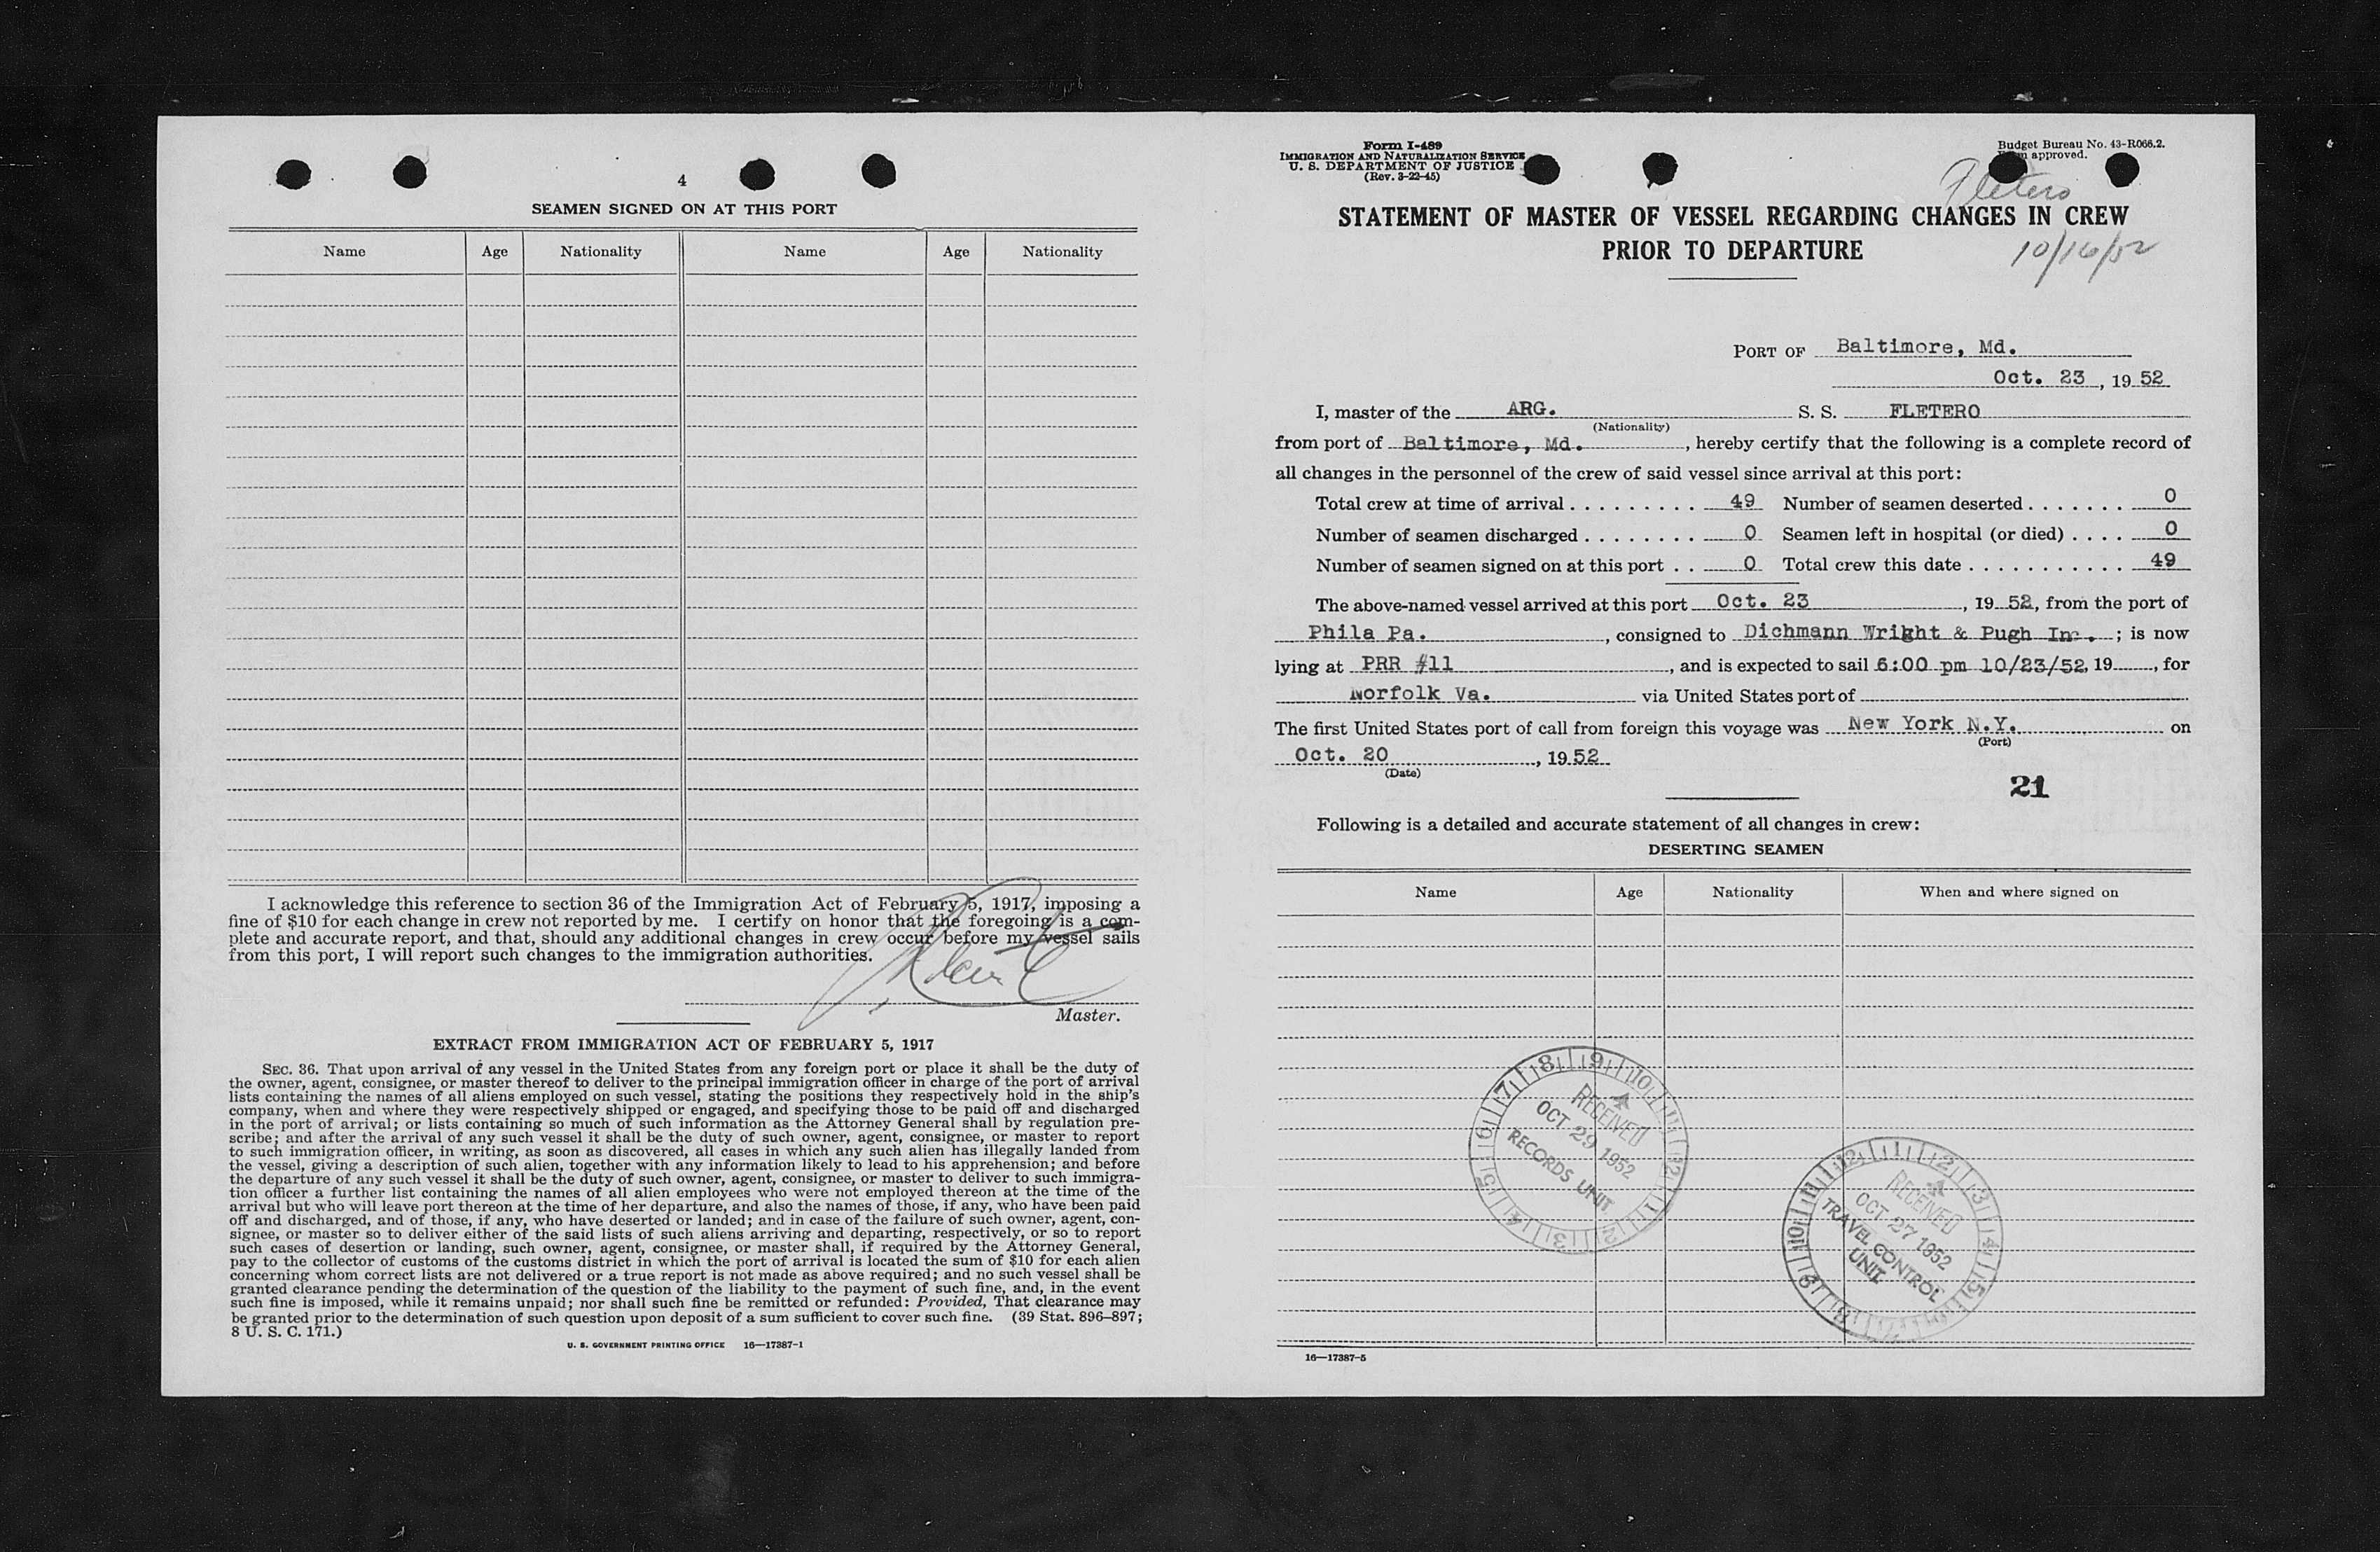 4
SEAMEN SIGNED ON AT THIS PORT
Name Age Nationality Name Age Nationality
I acknowledge this reference to section 36 of the Immigration Act of February 5, 1917, imposing a
fine of $10 for each change in crew not reported by me. I certify on honor that the foregoing is a com-
plete and accurate report, and that, should any additional changes in crew occur before my vessel sails
from this port, I will report such changes to the immigration authorities.
Master.
EXTRACT FROM IMMIGRATION ACT OF FEBRUARY 5, 1917
SEC. 36. That upon arrival of any vessel in the United States from any foreign port or place it shall be the duty of
the owner, agent, consignee, or master thereof to deliver to the principal immigration officer in charge of the port of arrival
lists containing the names of all aliens employed on such vessel, stating the positions they respectively hold in the ship's
company, when and where they were respectively shipped or engaged, and specifying those to be paid off and discharged
in the port of arrival; or lists containing so much of such information as the Attorney General shall by regulation pre-
scribe; and after the arrival of any such vessel it shall be the duty of such owner, agent, consignee, or master to report
to such immigration officer, in writing, as soon as discovered, all cases in which any such alien has illegally landed from
the vessel, giving a description of such alien, together with any information likely to lead to his apprehension; and before
the departure of any such vessel it shall be the duty of such owner, agent, consignee, or master to deliver to such immigra-
tion officer a further list containing the names of all alien employees who were not employed thereon at the time of the
arrival but who will leave port thereon at the time of her departure, and also the names of those, if any, who have been paid
off and discharged, and of those, if any, who have deserted or landed; and in case of the failure of such owner, agent, con-
signee, or master so to deliver either of the said lists of such aliens arriving and departing, respectively, or so to report
such cases of desertion or landing, such owner, agent, consignee, or master shall, if required by the Attorney General,
pay to the collector of customs of the customs district in which the port of arrival is located the sum of $10 for each alien
concerning whom correct lists are not delivered or a true report is not made as above required; and no such vessel shall be
granted clearance pending the determination of the question of the liability to the payment of such fine, and, in the event
such fine is imposed, while it remains unpaid; nor shall such fine be remitted or refunded: Provided, That clearance may
be granted prior to the determination of such question upon deposit of a sum sufficient to cover such fine. (39 Stat. 896–897;
8 U. S. C. 171.)
U. S. GOVERNMENT PRINTING OFFICE 16—17387-1
Form I-489
IMMIGRATION AND NATURALIZATION SERVICE
U. S. DEPARTMENT OF JUSTICE
(Rev. 3-22-45)
Budget Bureau No. 43-R066.2.
approved.
Fletero
STATEMENT OF MASTER OF VESSEL REGARDING CHANGES IN CREW
PRIOR TO DEPARTURE
10/16/52
PORT OF Baltimore, Md.
Oct. 23, 19 52
I, master of the ARG. S. S. FLETERO
(Nationality)
from port of Baltimore, Md., hereby certify that the following is a complete record of
all changes in the personnel of the crew of said vessel since arrival at this port:
Total crew at time of arrival . . . . . . . . . 49 Number of seamen deserted . . . . . . . 0
Number of seamen discharged . . . . . . . . 0 Seamen left in hospital (or died) . . . . 0
Number of seamen signed on at this port . . 0 Total crew this date . . . . . . . . . . . 49
The above-named vessel arrived at this port Oct. 23, 19 52, from the port of
Phila Pa., consigned to Dichmann Wright & Pugh Inc.; is now
lying at PRR #11, and is expected to sail 6:00 pm 10/23/52, 19 , for
Norfolk Va. via United States port of
The first United States port of call from foreign this voyage was New York N.Y. on
(Port)
Oct. 20, 19 52
(Date)
21
Following is a detailed and accurate statement of all changes in crew:
DESERTING SEAMEN
Name Age Nationality When and where signed on
RECEIVED
OCT 29 1952
RECORDS UNIT
RECEIVED
OCT 27 1952
TRAVEL CONTROL
UNIT
16—17387-5